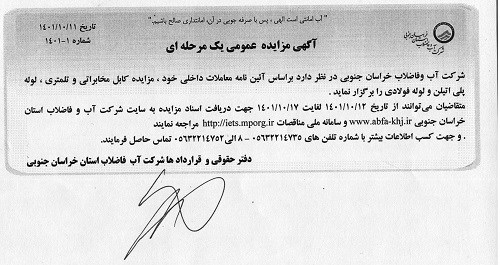 "آب امانتی است الهی ، پس با صرفه جویی در آن، امانتداری صالح باشیم."
تاریخ ۱۴۰۱/۱۰/۱۱
شماره ۱-۱۴۰۱
آگهی مزایده عمومی یک مرحله ای
شرکت آب وفاضلاب خراسان جنوبی در نظر دارد براساس آئین نامه معاملات داخلی خود ، مزایده کابل مخابراتی و تلمتری ، لوله
پلی اتیلن و لوله فولادی را برگزار نماید .
متقاضیان می‌توانند از تاریخ ۱۴۰۱/۱۰/۱۲ لغایت ۱۴۰۱/۱۰/۱۷ جهت دریافت اسناد مزایده به سایت شرکت آب و فاضلاب استان
خراسان جنوبی www.abfa-khj.ir و سامانه ملی مناقصات http://iets.mporg.ir مراجعه نمایند
. و جهت کسب اطلاعات بیشتر با شماره تلفن های ۰۵۶۳۲۲۱۴۷۳۵ - ۸ الی ۰۵۶۳۲۲۱۴۷۵۲ تماس حاصل فرمایند.
دفتر حقوقی و قراردادها شرکت آب فاضلاب استان خراسان جنوبی